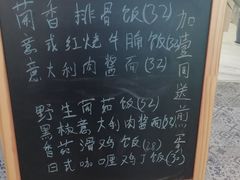 葡香排骨饭(32)
意式红烧牛腩饭(32)
意大利肉酱面(32)
野生菌菇饭(32)
黑椒意大利肉酱面(32)
香菇滑鸡饭(28)
日式咖喱鸡丁饭(30)
加壹圆送煎蛋